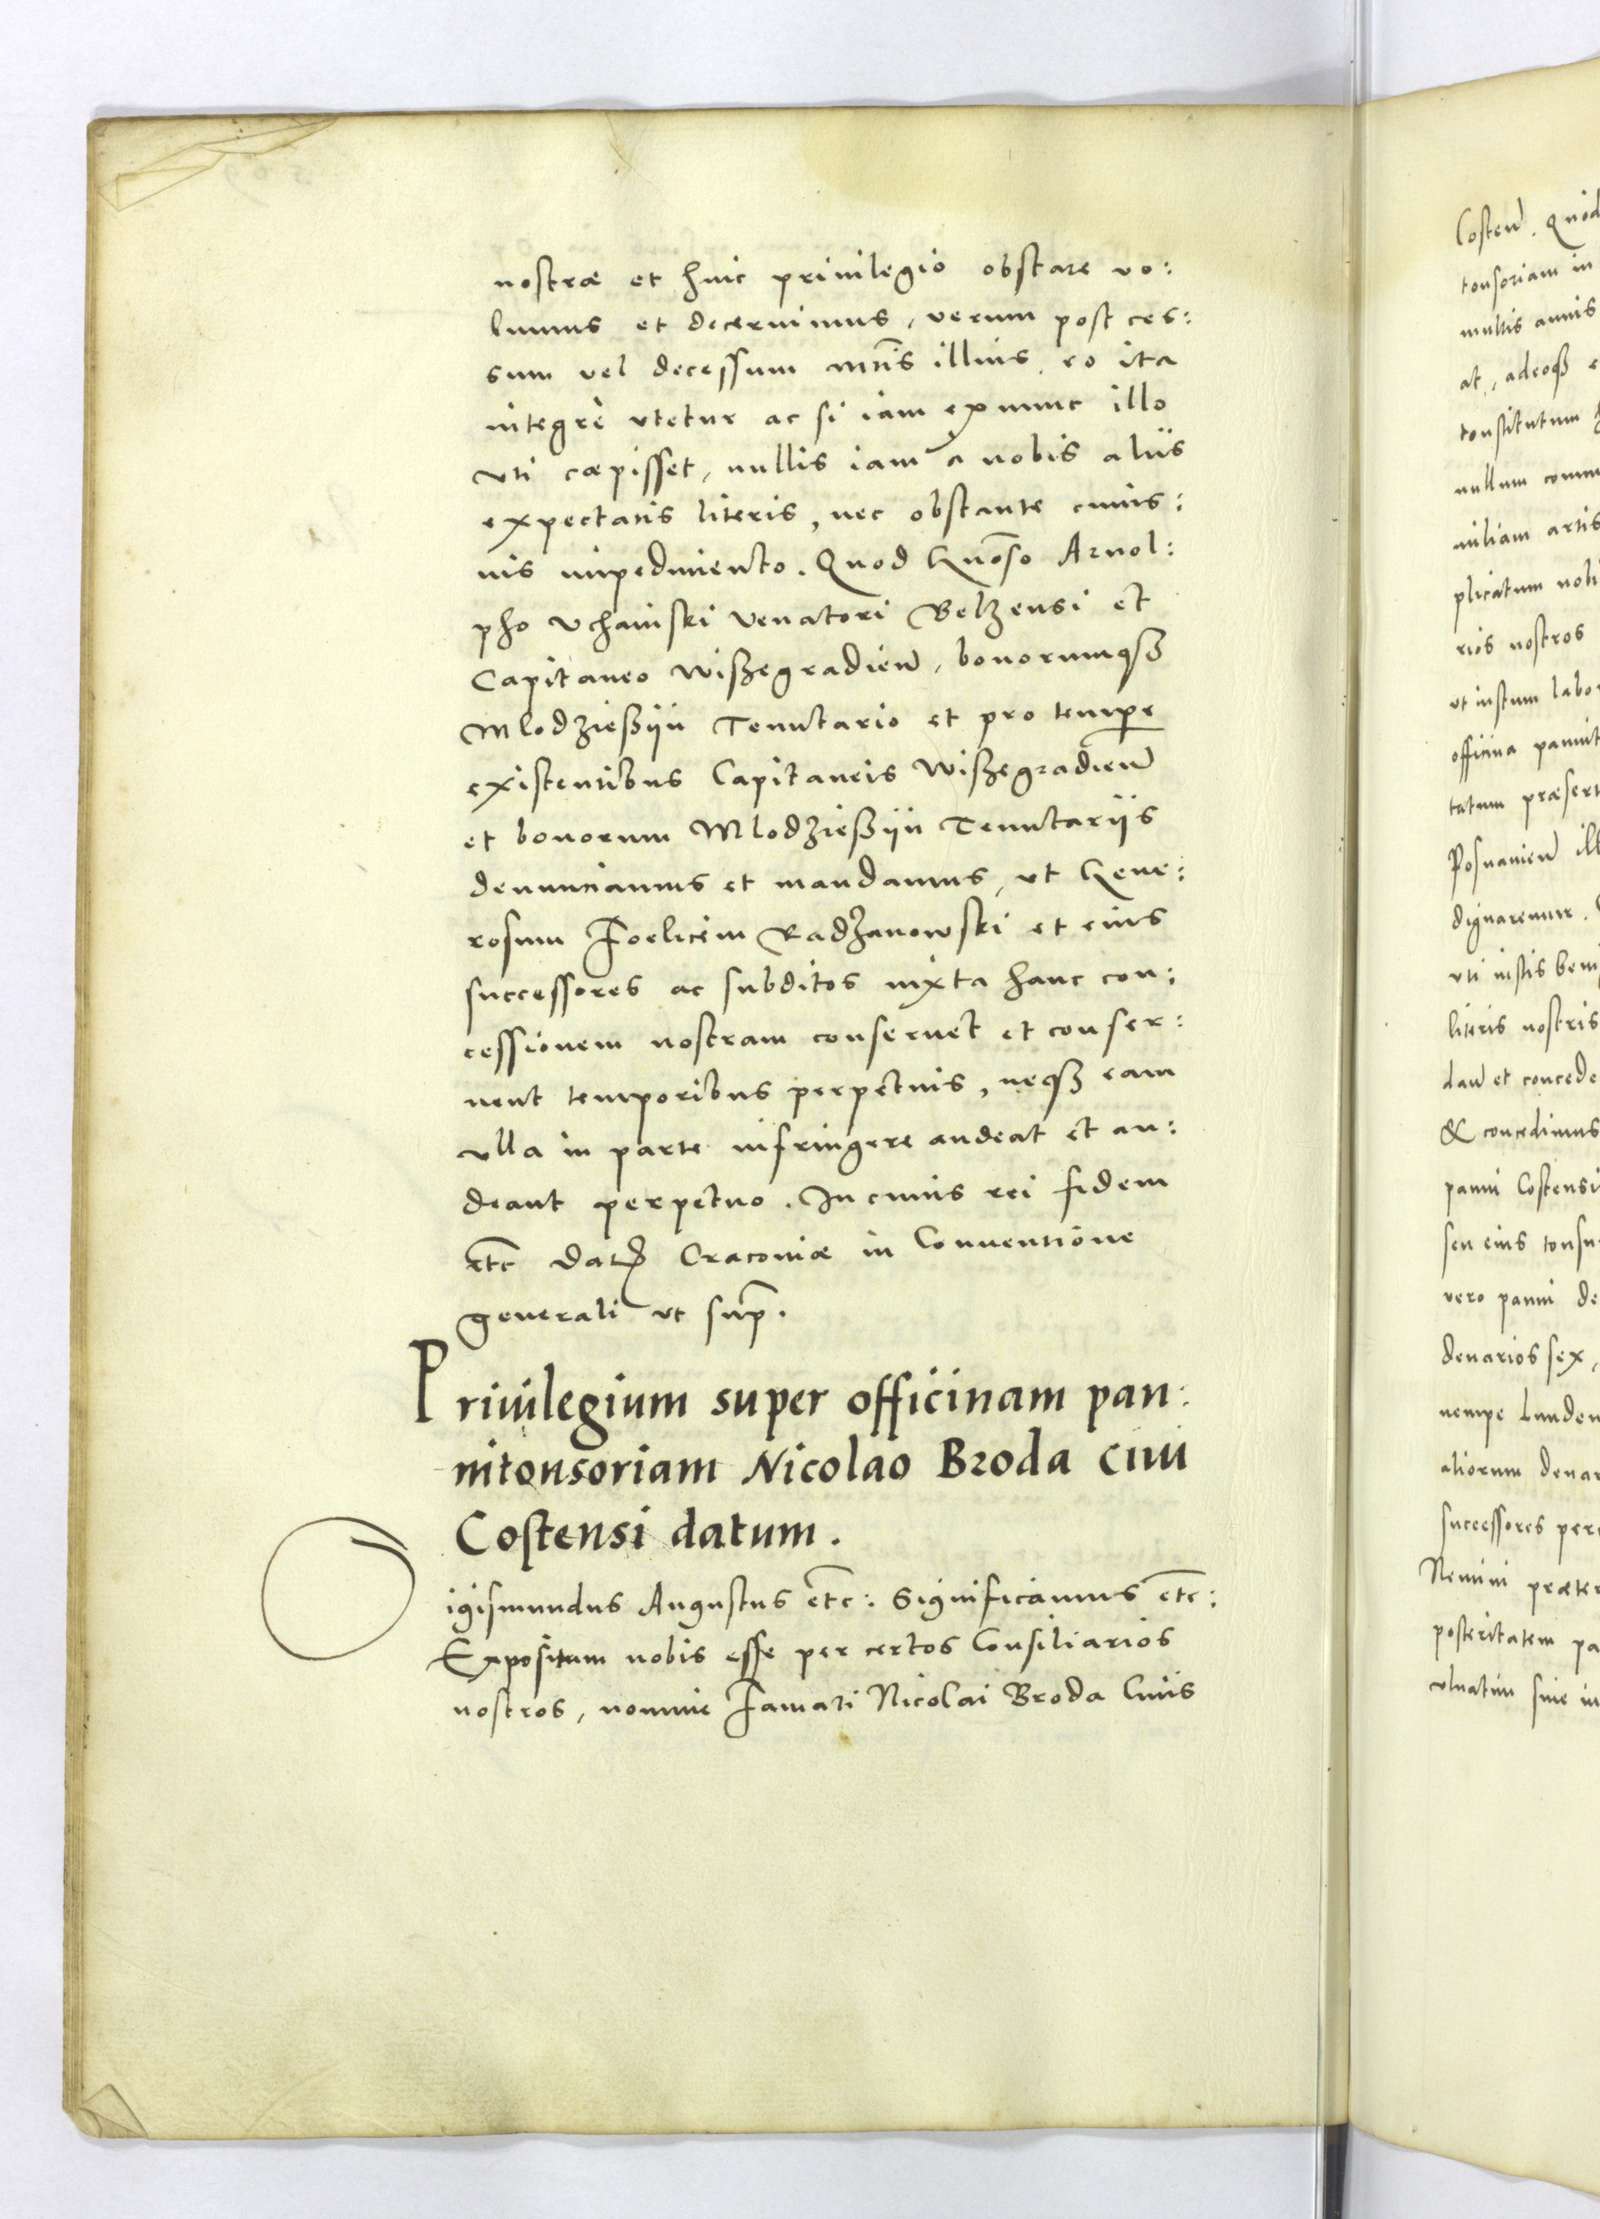 nostræ et huic priuilegio obstare vo:
lumus et decernimus, verum post ces:
sum vel decessum mñs illius, eo ita
integrè vtetur ac si iam ex nunc illo
vti cæpisset, nullis iam a nobis alijs
expectatis literis, nec obstante cuius:
uis impedimento. Quod Gnõso Arnol:
pho Vchanski Venatori Belzensi et
Capitaneo Wißegradień, bonorumqȝ
Mlodzießyn Tenutario et pro tempe
existentibus Capitaneis Wißegradień
et bonorum Mlodzießyn Tenutarijs
denunciamus et mandamus, vt Gene:
rosum Foelicem Radzanowski et eius
successores ac subditos iuxta hanc con:
cessionem nostram conseruet et conser:
uent temporibus perpetuis, neqȝ eam
vlla in parte infringere audeat et au:
deant perpetuo. In cuius rei fidem
etc Dat Cracouiæ in Conuentione
generali vt sup.
Priuilegium super officinam pan:
nitonsoriam Nicolao Broda ciui
Costensi datum.
igismundus Augustus etc: Significamus etc:
Expositum nobis esse per certos Consiliarios
nostros, nomine Famati Nicolai Broda Ciuis
Costeń. Quod
tonsoriam in
multis annis
at, adeoqȝ e
constitutum
nullum comm
miliam artis
plicatum nobi
rios nostros
vt iustum labo
officina pannit
tatum præsert
Posnanień ill
dignaremur.
vti iustis beni
literis nostris
dań et concede
& concedimus
panni Costensi
seu eius tonsu
vero panni de
denarios sex,
nempe Lunden
aliorum denar
successores per
Nemini præter
posteritatem pa
vlnatim siue in